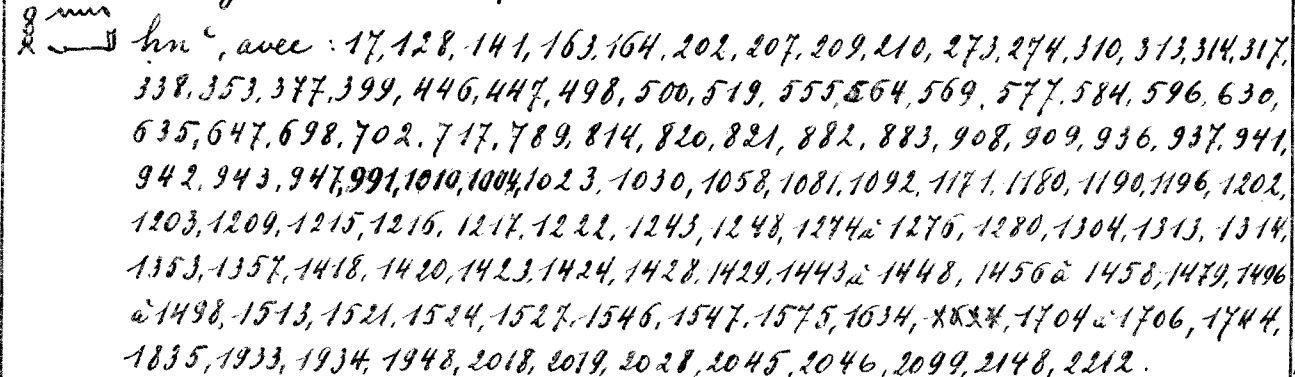 hnᶜ, avec : 17, 128, 141, 163, 164, 202, 207, 209, 210, 273, 274, 310, 313, 314, 317,
338, 353, 377, 399, 446, 447, 498, 500, 519, 555, 564, 569, 577, 584, 596, 630,
635, 647, 698, 702, 717, 789, 814, 820, 821, 882, 883, 908, 909, 936, 937, 941,
942, 943, 947, 991, 1010, 1004, 1023, 1030, 1058, 1081, 1092, 1171, 1180, 1190, 1196, 1202,
1203, 1209, 1215, 1216, 1217, 1222, 1243, 1248, 1274 à 1276, 1280, 1304, 1313, 1314,
1353, 1357, 1418, 1420, 1423, 1424, 1428, 1429, 1443 à 1448, 1456 à 1458, 1479, 1496
à 1498, 1513, 1521, 1524, 1527, 1546, 1547, 1575, 1634, 1704 à 1706, 1744,
1835, 1933, 1934, 1948, 2018, 2019, 2028, 2045, 2046, 2099, 2148, 2212.